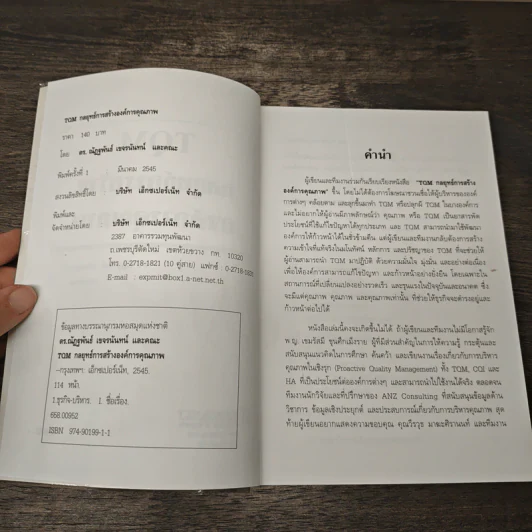 TQM กลยุทธ์การสร้างองค์การคุณภาพ
ราคา 140 บาท
โดย ดร.ณัฏฐพันธ์ เขจรนันทน์ และคณะ
พิมพ์ครั้งที่ 1 มีนาคม 2545
สงวนลิขสิทธิ์โดย บริษัท เอ็กซเปอร์เน็ท จำกัด
พิมพ์และ
จัดจำหน่ายโดย บริษัท เอ็กซเปอร์เน็ท จำกัด
2387 อาคารรวมทุนพัฒนา
ถ.เพชรบุรีตัดใหม่ เขตห้วยขวาง กท. 10320
โทร. 0-2718-1821 (10 คู่สาย) แฟกซ์ 0-2718-1831
E-mail : expmit@box1.a-net.net.th
ข้อมูลทางบรรณานุกรมหอสมุดแห่งชาติ
ดร.ณัฏฐพันธ์ เขจรนันทน์ และคณะ
TQM กลยุทธ์การสร้างองค์การคุณภาพ
--กรุงเทพฯ: เอ็กซเปอร์เน็ท, 2545.
114 หน้า.
1.ธุรกิจ-บริหาร. I. ชื่อเรื่อง.
658.00952
ISBN 974-90199-1-1
คำนำ
ผู้เขียนและทีมงานร่วมกันเรียบเรียงหนังสือ "TQM กลยุทธ์การสร้าง
องค์การคุณภาพ" ขึ้น โดยไม่ได้ต้องการโฆษณาชวนเชื่อให้ผู้บริหารขององค์
การต่างๆ คล้อยตาม และลุกขึ้นมาทำ TQM หรือปลุกผี TQM ในบางองค์การ
และไม่อยากให้ผู้อ่านมีภาพลักษณ์ว่า คุณภาพ หรือ TQM เป็นยาสารพัด
ประโยชน์ที่ใช้แก้ไขปัญหาได้ทุกประเภท และ TQM สามารถนำมาใช้พัฒนา
องค์การให้ก้าวหน้าได้ในชั่วข้ามคืน แต่ผู้เขียนและทีมงานกลับต้องการสร้าง
ความเข้าใจที่แท้จริงในมโนทัศน์ หลักการ และปรัชญาของ TQM ที่จะช่วยให้
ผู้อ่านสามารถนำ TQM มาปฏิบัติ ด้วยความมั่นใจ มุ่งมั่น และอย่างต่อเนื่อง
เพื่อให้องค์การสามารถแก้ไขปัญหา และก้าวหน้าอย่างยั่งยืน โดยเฉพาะใน
สถานการณ์ที่เปลี่ยนแปลงอย่างรวดเร็ว และรุนแรงในปัจจุบันและอนาคต ซึ่ง
จะมีแต่คุณภาพ คุณภาพ และคุณภาพเท่านั้น ที่ช่วยให้ธุรกิจจะดำรงอยู่และ
ก้าวหน้าต่อไปได้
หนังสือเล่มนี้คงจะเกิดขึ้นไม่ได้ ถ้าผู้เขียนและทีมงานไม่มีโอกาสรู้จัก
พ.ญ. เขมรัสมี ขุนศึกเม็งราย ผู้ที่มีส่วนสำคัญในการให้ความรู้ กระตุ้นและ
สนับสนุนแนวคิดในการศึกษา ค้นคว้า และเขียนงานเรื่องเกี่ยวกับการบริหาร
คุณภาพในเชิงรุก (Proactive Quality Management) ทั้ง TQM, CQI และ
HA ที่เป็นประโยชน์ต่อองค์การต่างๆ และสามารถนำไปใช้งานได้จริง ตลอดจน
ทีมงานนักวิจัยและที่ปรึกษาของ ANZ Consulting ที่สนับสนุนข้อมูลด้าน
วิชาการ ข้อมูลเชิงประยุกต์ และประสบการณ์เกี่ยวกับการบริหารคุณภาพ สุด
ท้ายผู้เขียนอยากแสดงความขอบคุณ คุณวีรวุธ มาฆะศิรานนท์ และทีมงาน